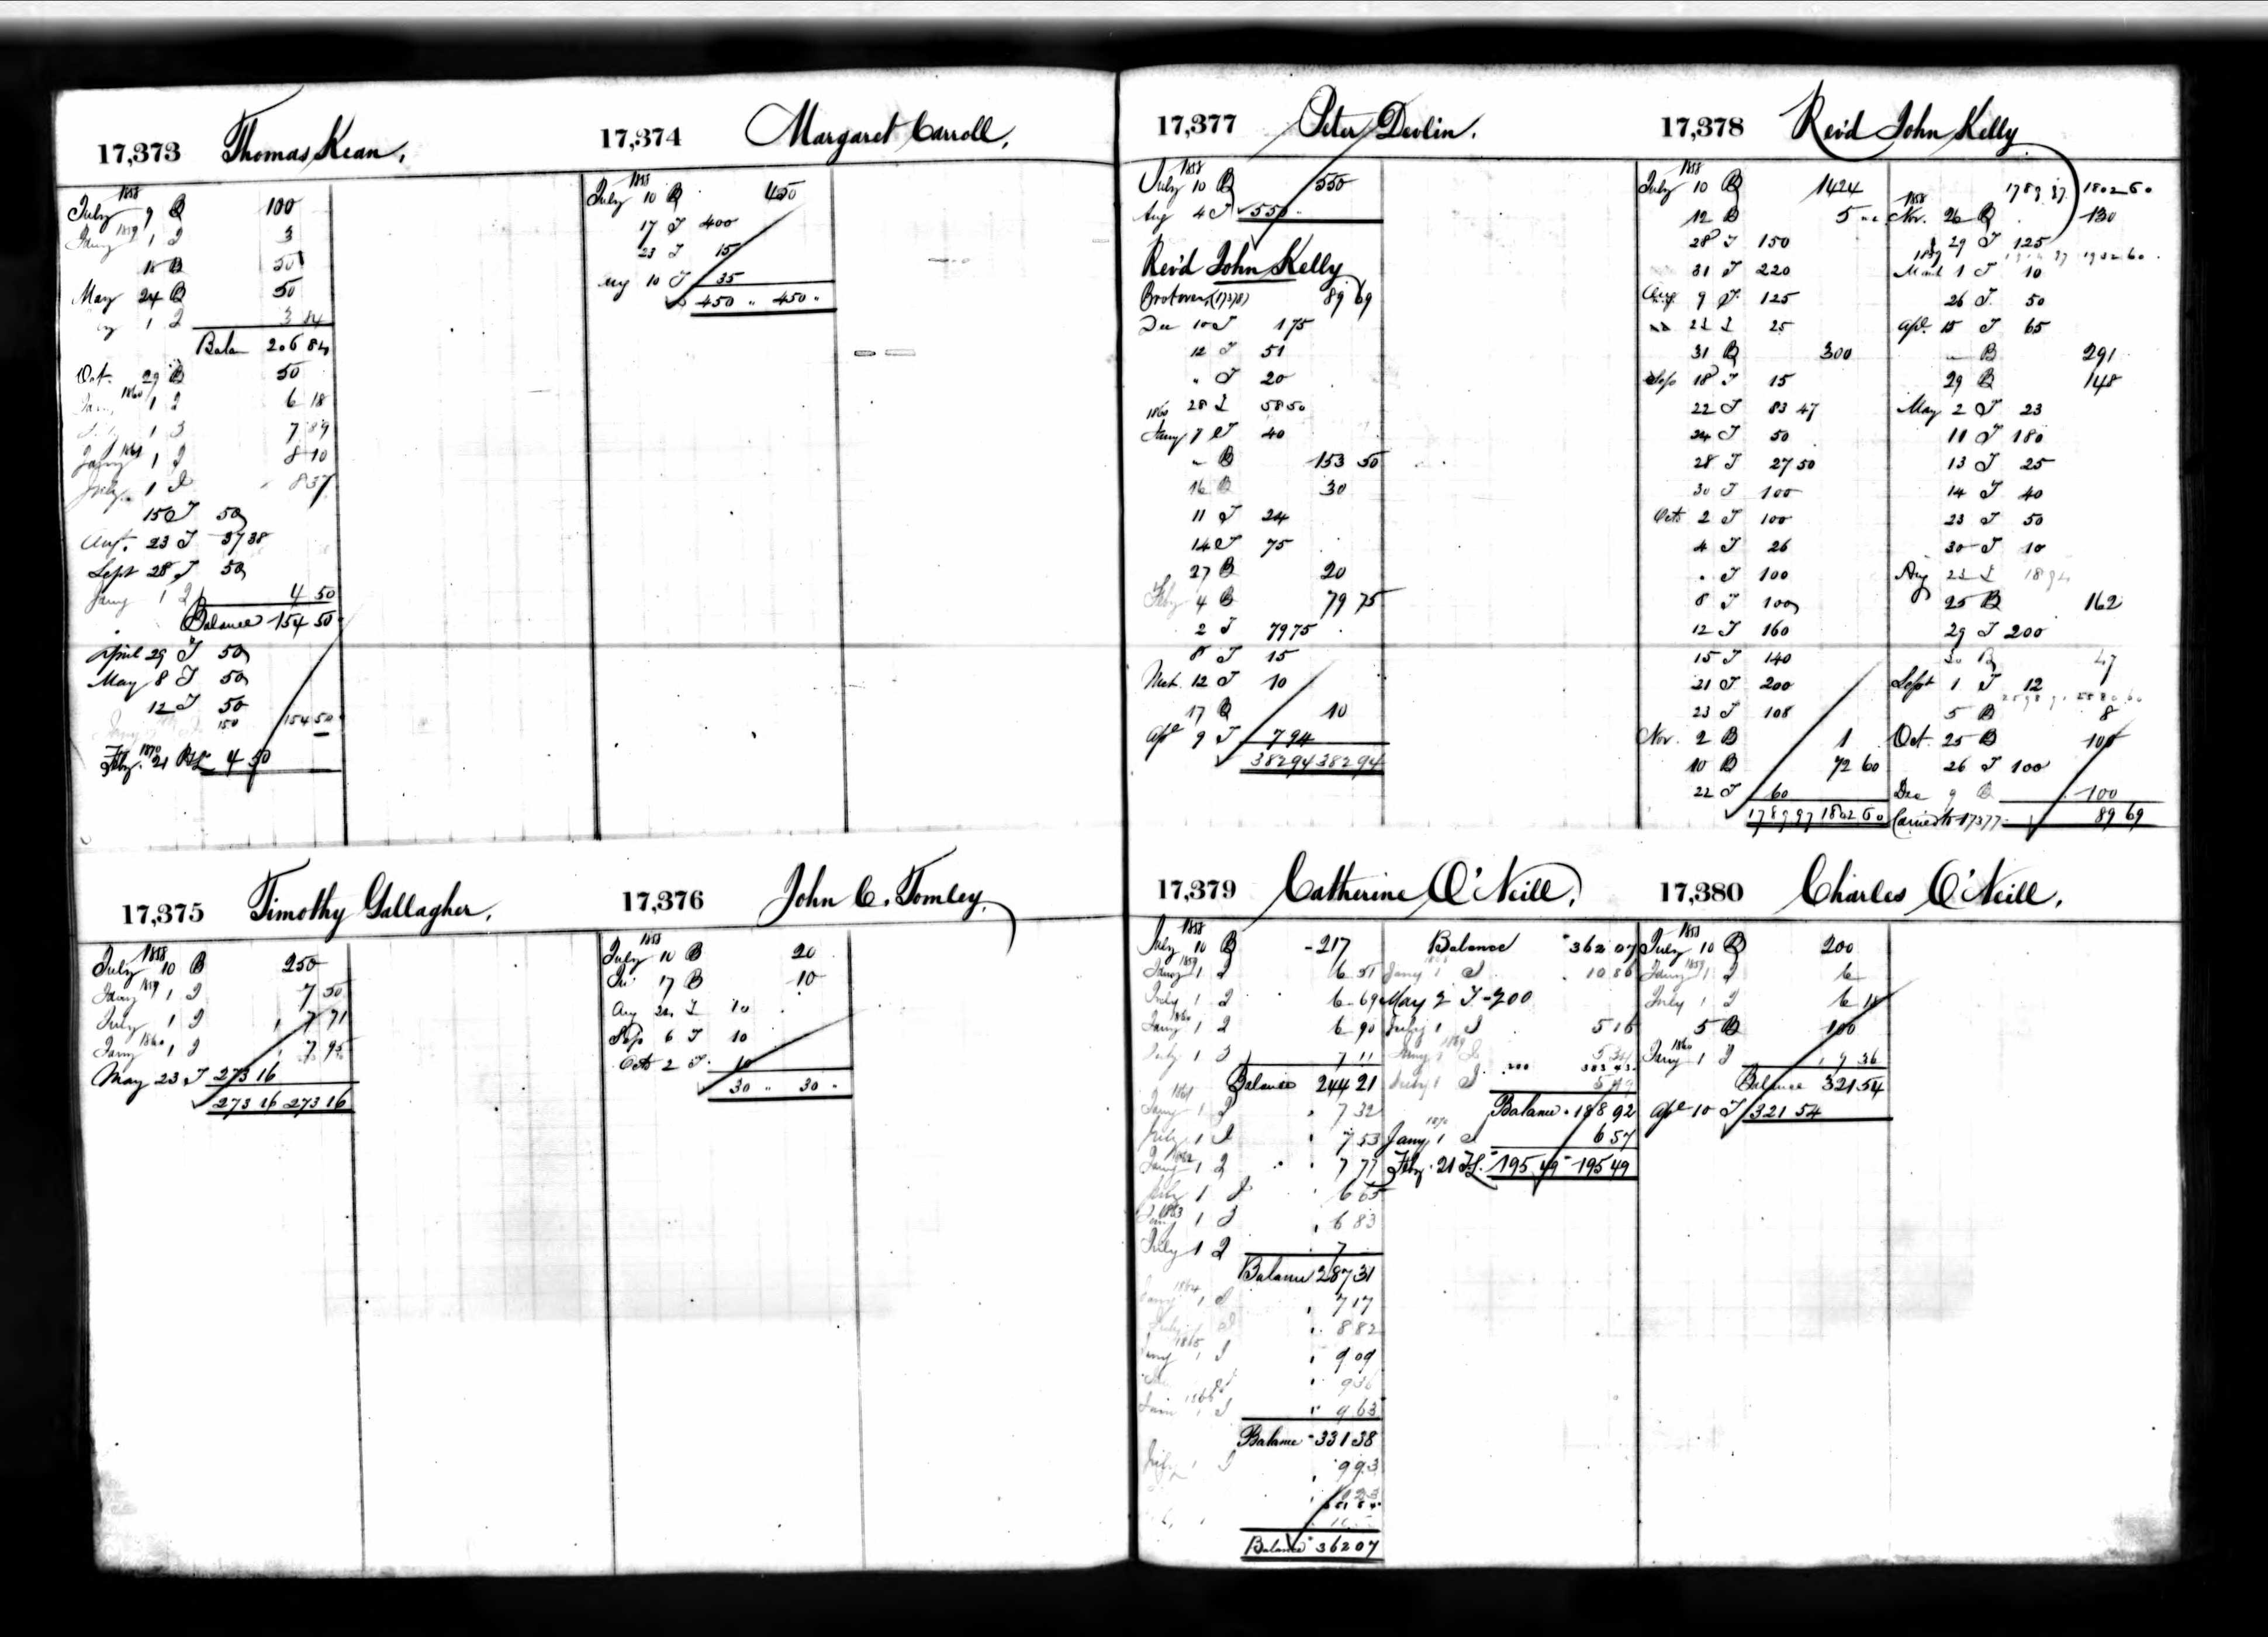 17,373 Thomas Kean.
1858
July 9 B 100
Jany 1859 1 I 3
18 B 50
May 24 B 50
1 I 3 84
Balan 206 84
Oct. 29 B 50
1860 1 I 6 18
1 I 7 89
Jany 1861 1 I 8 10
July 1 I 8 37
15 T 50
Aug. 23 T 37 38
Sept 28 T 50
Jany 1 I 4 50
Balance 154 50
April 29 T 50
May 8 T 50
12 T 50
150 154 50
1870
Feby. 21 4 50
17,374 Margaret Carroll.
1858
July 10 B 450
17 T 400
23 T 15
Aug 10 T 35
450 " 450 "
17,375 Timothy Gallagher.
1858
July 10 B 250
Jany 1859 1 I 7 50
July 1 I 7 71
Jany 1860 1 I 7 95
May 23 T 273 16
273 16 273 16
17,376 John C. Tomley.
1858
July 10 B 20
17 B 10
Aug 24 T 10
Sep 6 T 10
Octo 2 T 10
30 " 30 "
17,377 Peter Devlin.
1858
July 10 B 550
Aug 4 T 550
Rev'd John Kelly
Brot over (17378) 89 69
Dec 10 T 175
12 T 51
" T 20
28 T 58 50
1860
Jany 7 T 40
" B 153 50
16 B 30
11 T 24
14 T 75
27 B 20
Feby 4 B 79 75
2 T 79 75
8 T 15
Mch. 12 T 10
17 B 10
Apl 9 T 7 94
382 94 382 94
17,378 Rev'd John Kelly
1858
July 10 B 1424
12 B 5
28 T 150
31 T 220
Aug 9 T 125
21 T 25
31 B 300
Sep 18 T 15
22 T 83 47
24 T 50
28 T 27 50
30 T 100
Octo 2 T 100
4 T 26
" T 100
8 T 100
12 T 160
15 T 140
21 T 200
23 T 108
Nov. 2 B 1
10 B 72 60
22 T 60
1789 97 1802 60
1789 97 1802 60
1858
Nov. 26 B 130
29 T 125
1859
March 1 T 10
26 T 50
Apl. 15 T 65
" B 291
29 B 148
May 2 T 23
11 T 180
13 T 25
14 T 40
23 T 50
30 T 10
Aug 22 T 18 94
25 B 162
29 T 200
30 B 47
Sept 1 T 12
5 B 8
Oct. 25 B 100
26 T 100
Dec 9 B 100
Carried to 17377 89 69
17,379 Catherine O'Neill.
1858
July 10 B 217
Jany 1859 1 I 6 51
July 1 I 6 69
Jany 1860 1 I 6 90
July 1 I 7 11
Balance 244 21
1861
Jany 1 I 7 32
July 1 I 7 53
Jany 1862 1 I 7 77
July 1 I 6 65
1863 1 I 6 83
July 1 I 7
Balance 287 31
1864 1 I 7 17
8 82
1865
Jany 1 I 9 09
9 36
1866 9 63
Balance 331 38
July 1 I 9 93
Balance 362 07
Balance 362 07
Jany 1 I 10 86
May 2 T 200
July 1 I 5 16
Jany 1 I 5 34
July 1 I 5 49
Balance 188 92
1870
Jany 1 I 6 57
Feby. 21 195 49 195 49
17,380 Charles O'Neill.
1858
July 10 B 200
Jany 1859 1 I 6
July 1 I 6 18
5 B 100
1860
Jany 1 I 9 36
Balance 321 54
Apl 10 T 321 54